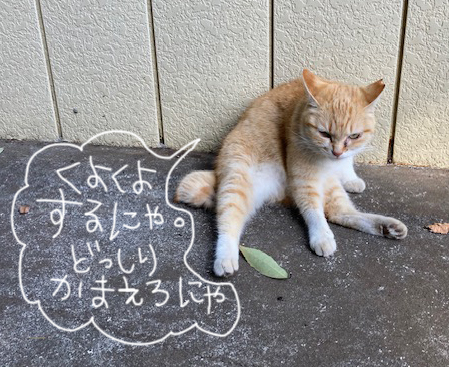 くよくよ
するにゃ。
どっしり
かまえろにゃ